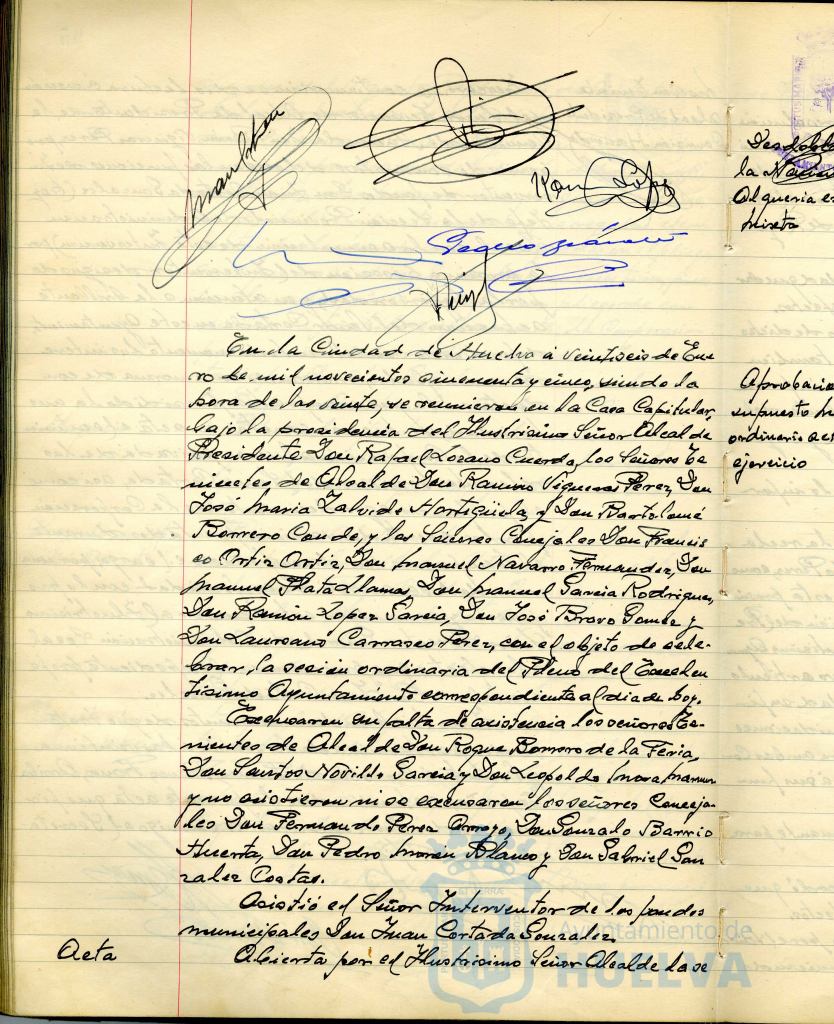 Pedro
López
En la Ciudad de Huelva a veintiseis de Ene
ro de mil novecientos cincuenta y cinco, siendo la
hora de las veinte, se reunieron en la Casa Capitular,
bajo la presidencia del Ilustrisimo Señor Alcalde
Presidente Don Rafael Lozano Cuerda, los Señores Te
nientes de Alcalde Don Ramiro Vigueras Perez, Don
José Maria Zalvide Hortigüela, y Don Bartolomé
Borrero Conde, y los Señores Concejales Don Francis
co Ortiz Ortiz, Don Manuel Navarro Fernandez, Don
Manuel Plata Llamas, Don Manuel Garcia Rodriguez,
Don Ramón Lopez Garcia, Don José Bravo Gomez y
Don Laureano Carrasco Perez, con el objeto de cele-
brar la sesión ordinaria del Pleno del Excelen
tisimo Ayuntamiento correspondiente al dia de hoy.
Excusaron su falta de asistencia los señores Te-
nientes de Alcalde Don Roque Borrero de la Feria,
Don Santos Novillo Garcia y Don Leopoldo
y no asistieron ni se excusaron los señores Conceja-
les Don Fernando Perez Arroyo, Don Gonzalo Barrio
Huerta, Don Pedro Morón Blanco y Don Gabriel Gon
zalez Costas.
Asistió el Señor Interventor de los fondos
municipales Don Juan Cortada Gonzalez
Acta
Abierta por el Ilustrisimo Señor Alcalde la se
la
Alqueria
Aprobacio
supuesto
ordinario
ejercicio
Ayuntamiento de
HUELVA